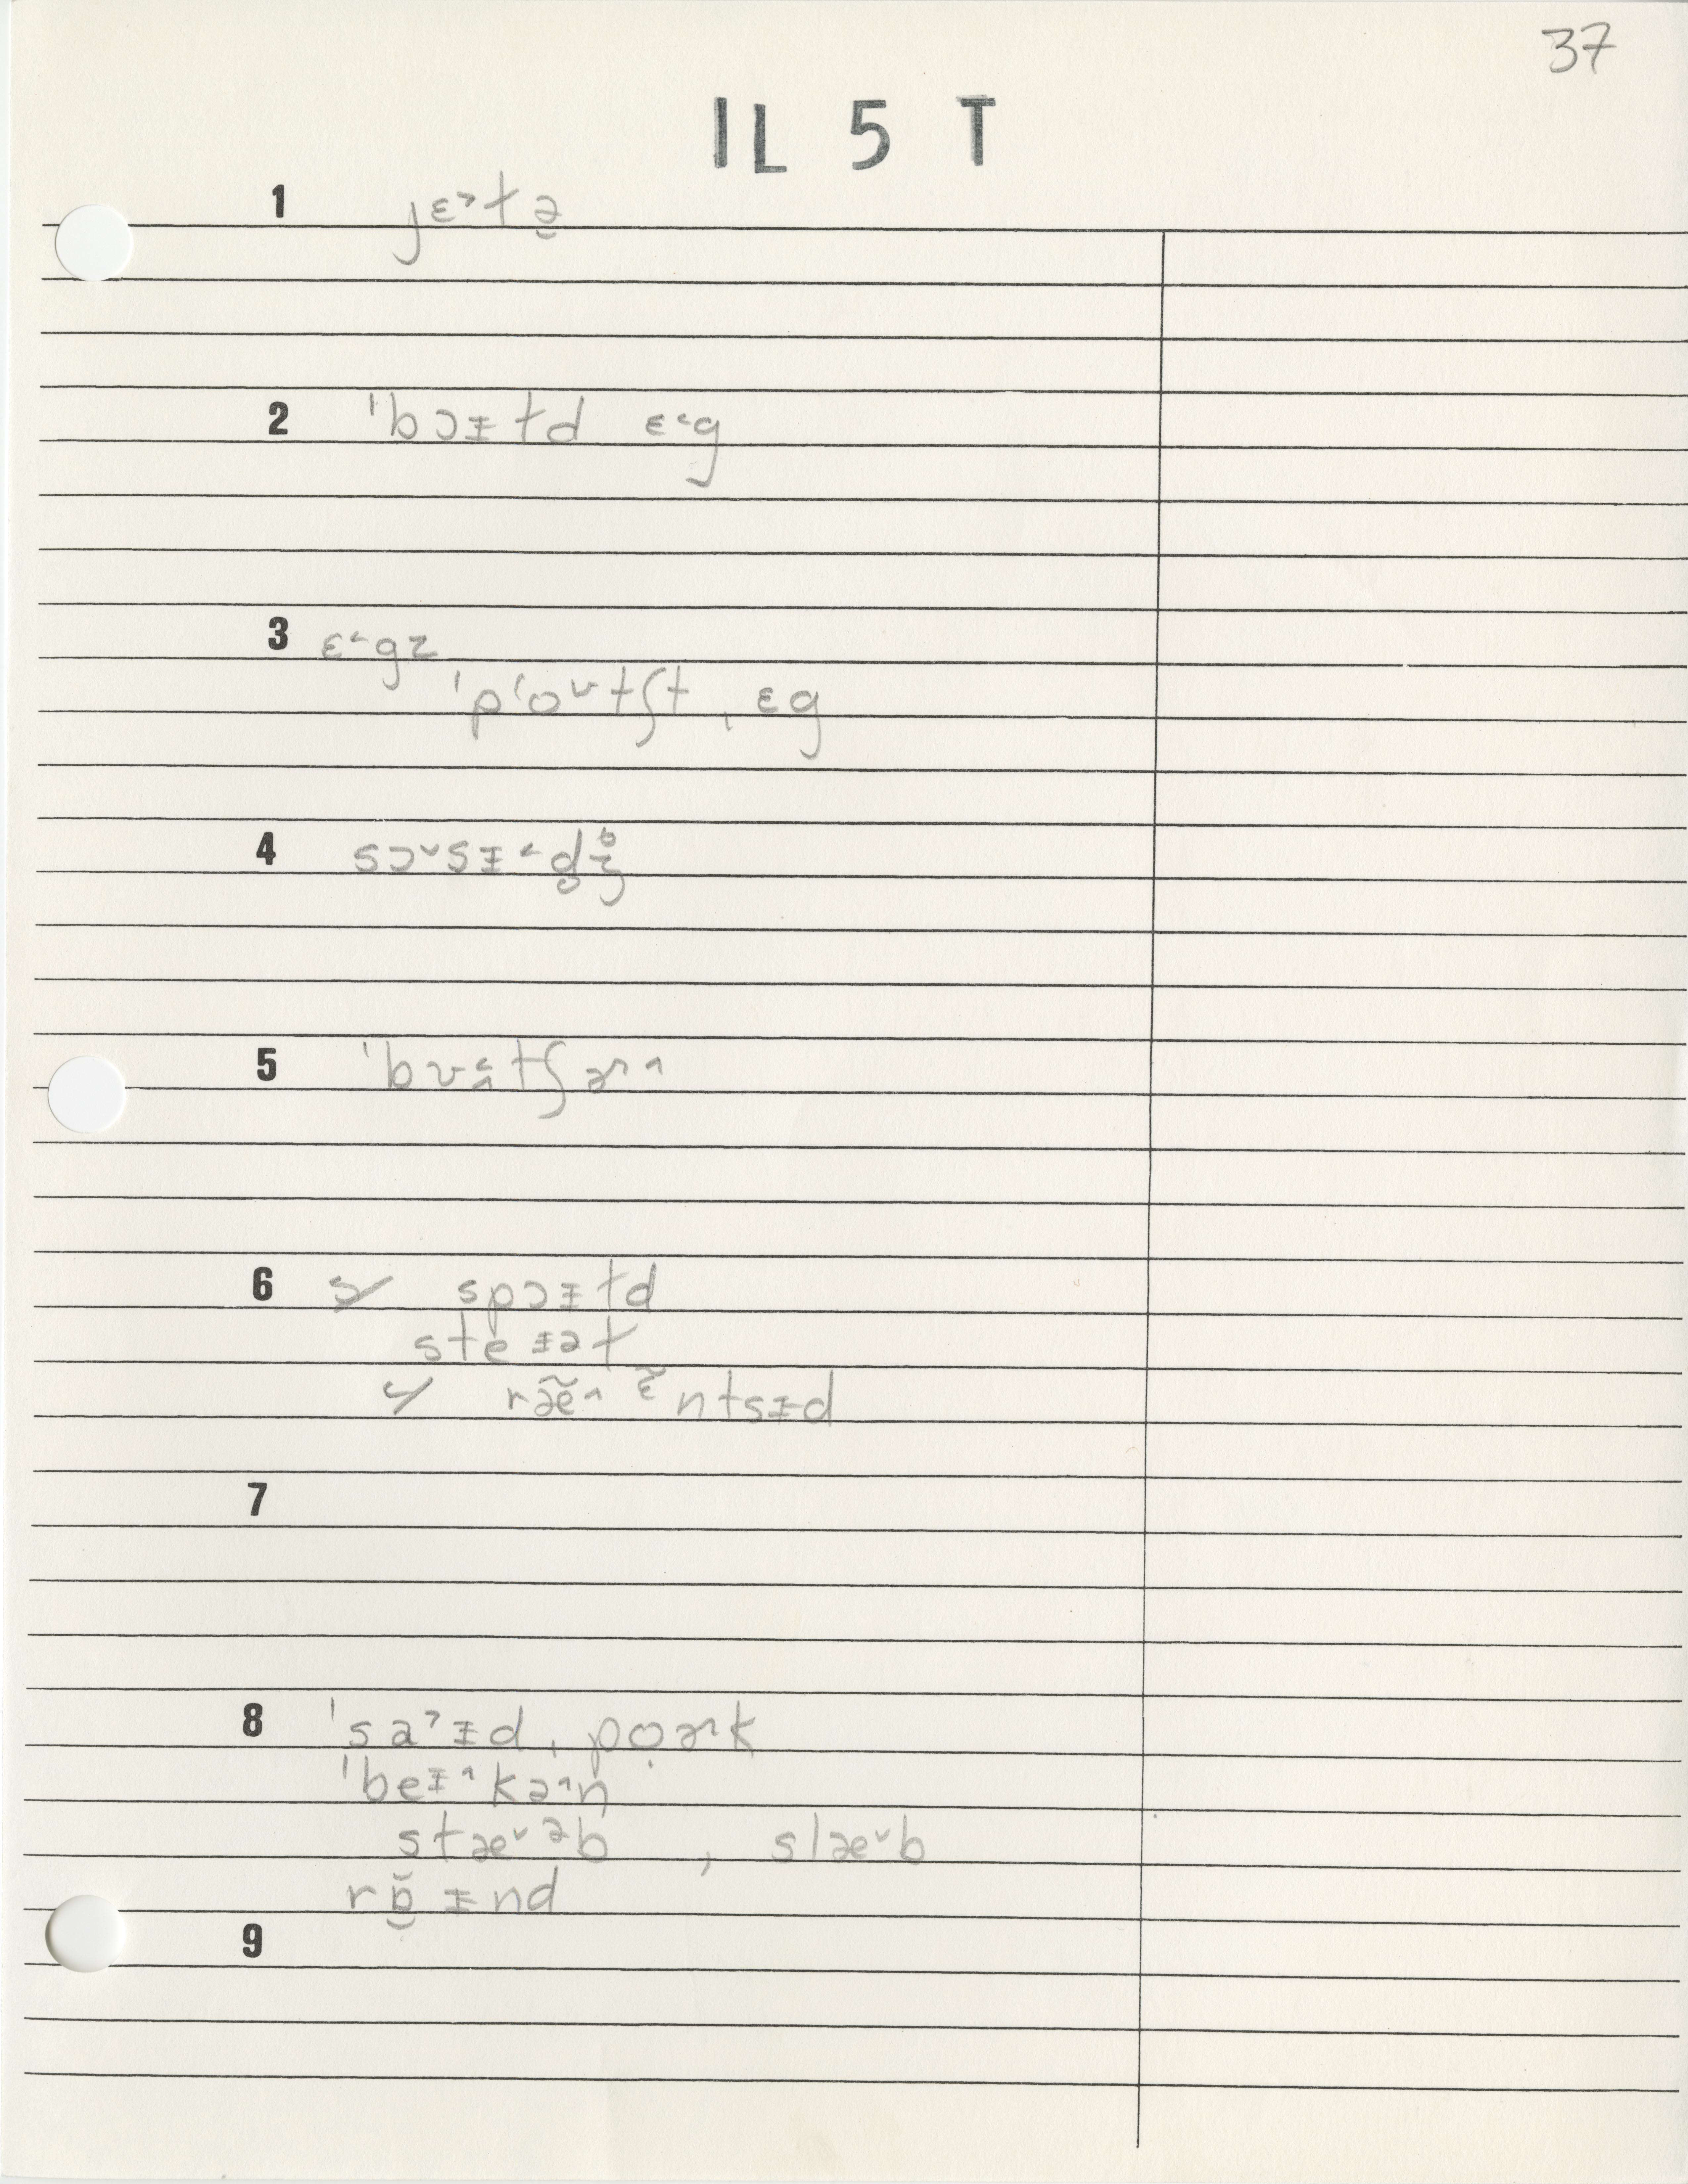 37
IL 5 T
1 jɛ˃tə̮
2 ˈbɔᵻtd ɛ˂g
3 ɛ˂gz
ˈp‘o˅tʃt ˌɛg
4 sɔ˅sᵻ˂d̥ʒ̊
5 ˈbʊ˂˄tʃɚ˄
6 s✓ spɔᵻtd
steᵻət
s✓ ræ̃˄ ɛ̃ntsᵻd
7
8 ˈsa˃ᵻdˌpọɚk
ˈbeᵻ˄kə˄n
stæ˅əb , slæ˅b
rɒ̮̆ᵻnd
9